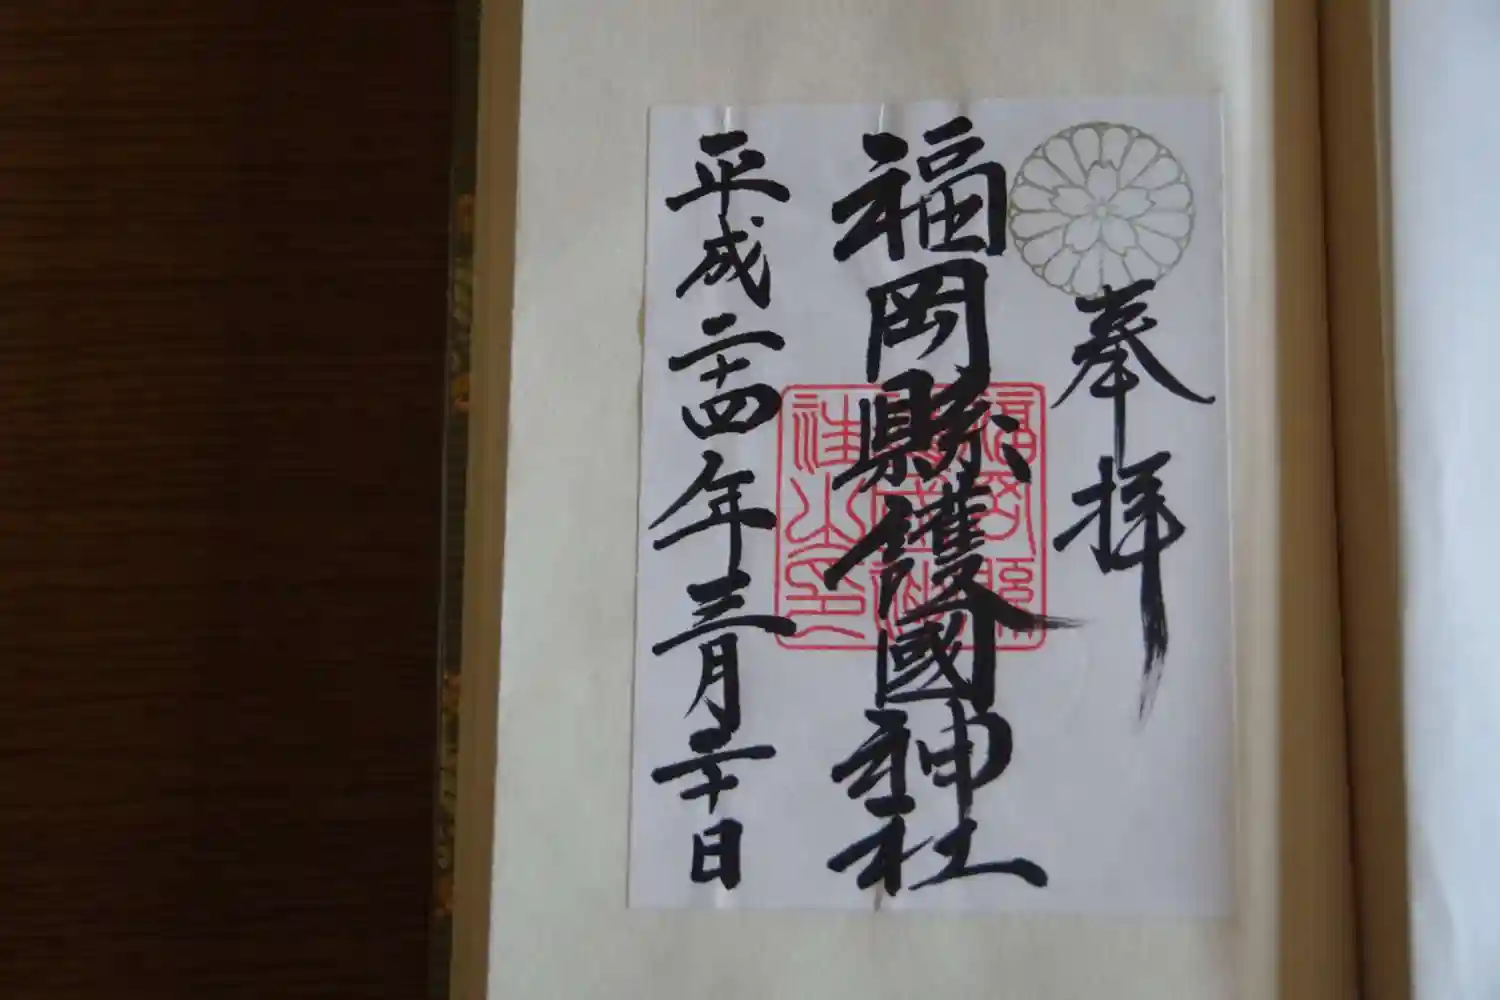 奉拝
福岡縣護國神社
福岡縣
社之印
平成二十四年三月二十日